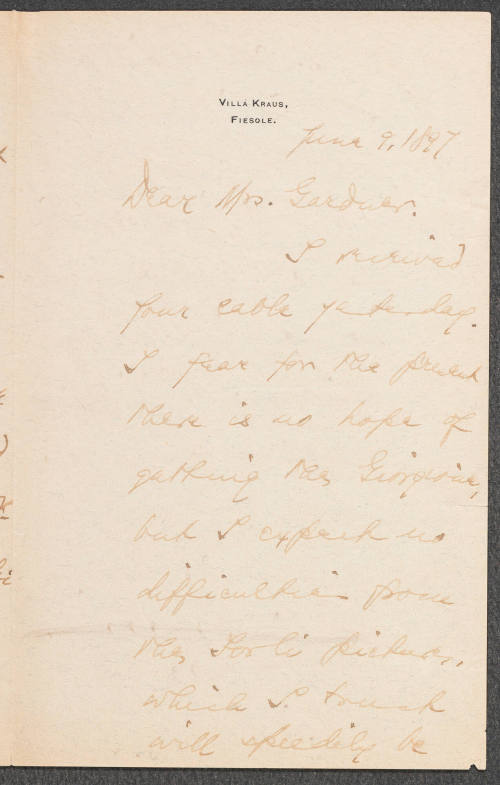 VILLA KRAUS,
FIESOLE.
June 9, 1897
Dear Mrs. Gardner.
I received
your cable yesterday.
I fear for the present
there is no hope of
getting the Giorgione,
but I expect no
difficulties from
the Forli picture,
which I trust
will speedily be